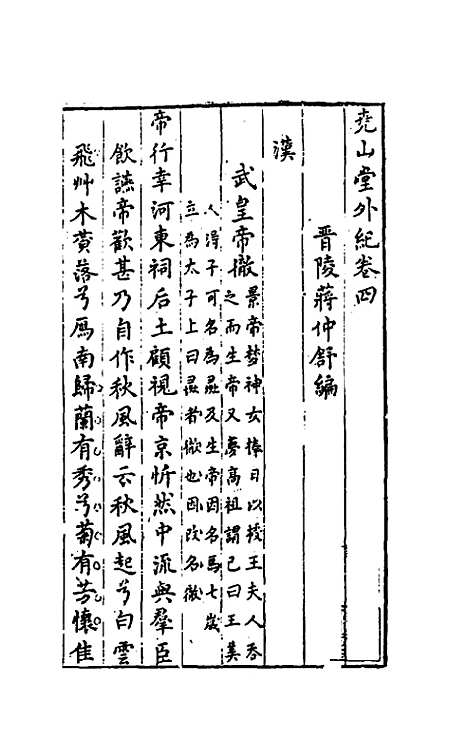 堯山堂外紀卷四
晋陵蔣仲舒編
漢
武皇帝徹
景帝夢神女捧日以授王夫人吞
之而生帝又夢高祖謂己曰王美
人得子可名為彘及生帝因名焉七歲
立為太子上曰彘者徹也因改名徹
帝行幸河東祠后土顧視帝京忻然中流與羣臣
飲讌帝歡甚乃自作秋風辭云秋風起兮白雲
飛艸木黄落兮鴈南歸蘭有秀兮菊有芳懷佳